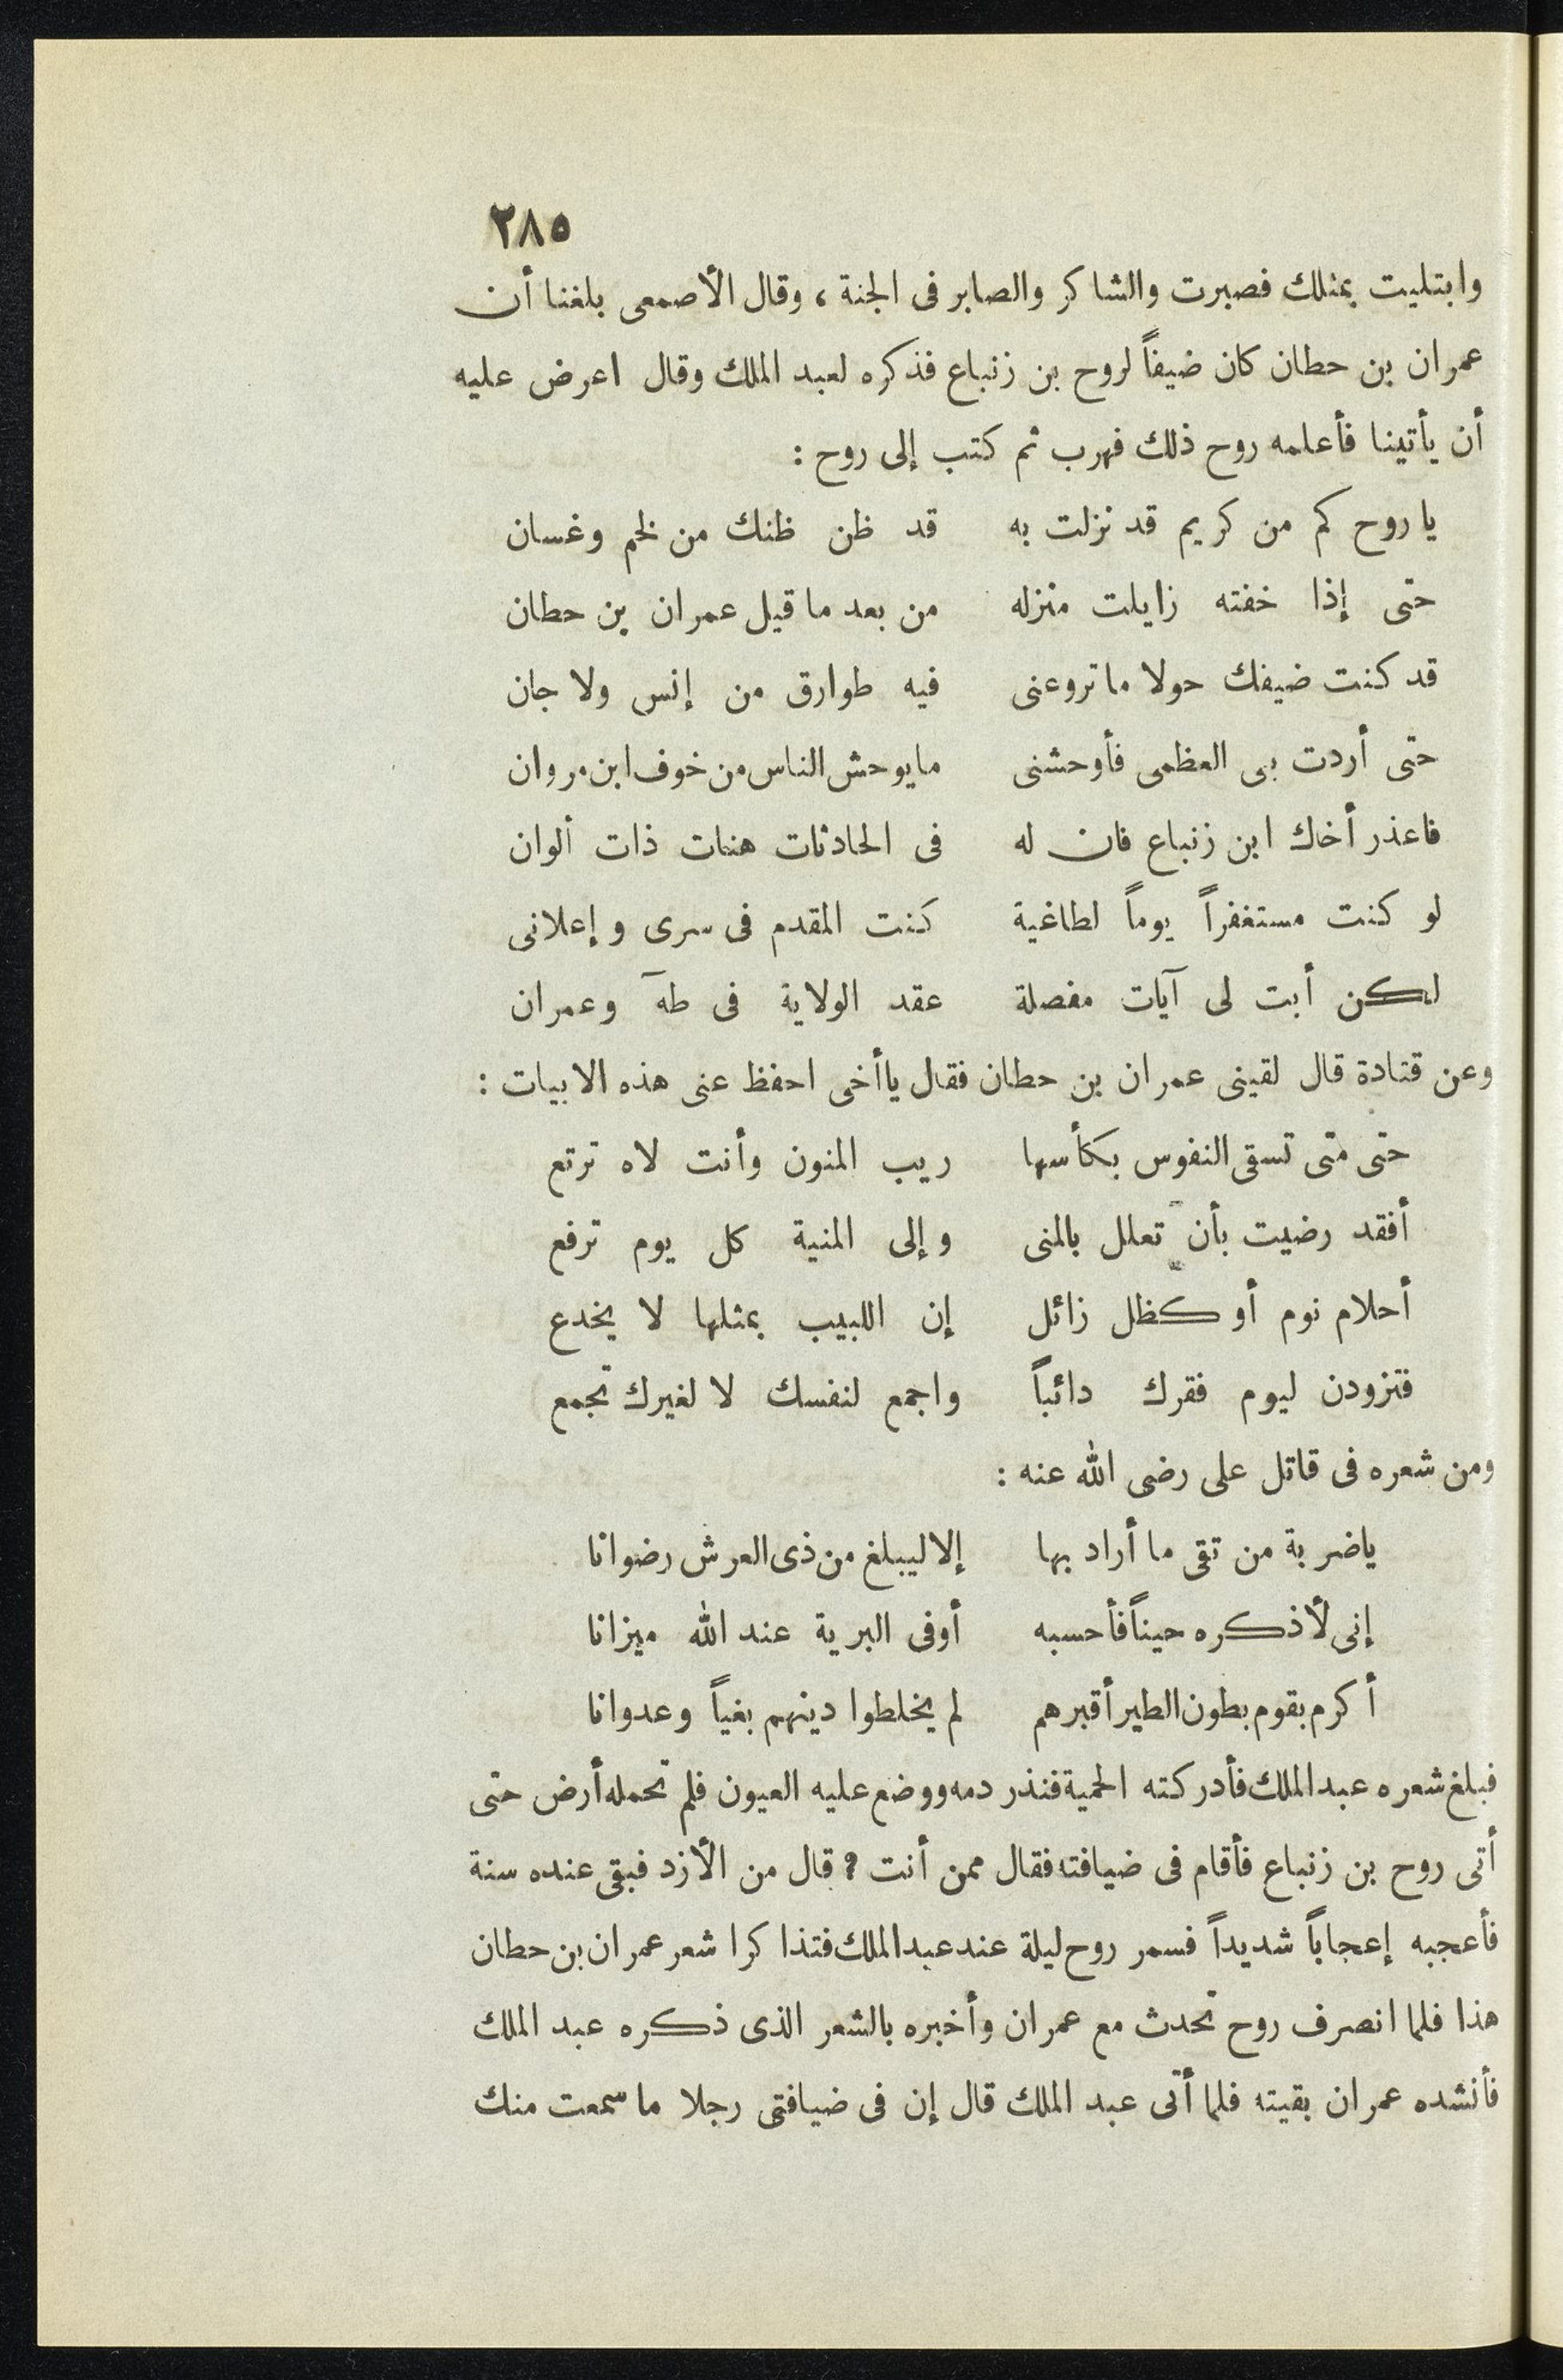 ٢٨٥
وابتليت بمثلك فصبرت والشاكر والصابر فى الجنة ، وقال الأصمعى بلغنا أن
عمران بن حطان كان ضيفاً لروح بن زنباع فذكره لعبد الملك وقال اعرض عليه
أن يأتينا فأعلمه روح ذلك فهرب ثم كتب إلى روح :
ياروح كم من كريم قد نزلت به قد ظن ظنك من لخم وغسان
حتى إذا خفته زايلت منزله من بعد ماقيل عمران بن حطان
قد كنت ضيفك حولا ماتروعنى فيه طوارق من إنس ولا جان
حتى أردت بى العظمى فأوحشنى مايوحش الناس من خوف ابن مروان
فاعذر أخاك ابن زنباع فان له فى الحادثات هنات ذات ألوان
لو كنت مستغفراً يوماً لطاغية كنت المقدم فى سرى وإعلانى
لكن أبت لى آيات مفصلة عقد الولاية فى طهَ وعمران
وعن قتادة قال لقينى عمران بن حطان فقال ياأخى احفظ عنى هذه الابيات :
حتى متى تسقى النفوس بكأسها ريب المنون وأنت لاه ترتع
أفقد رضيت بأن تعلل بالمنى وإلى المنية كل يوم ترفع
أحلام نوم أو كظل زائل إن اللبيب بمثلها لا يخدع
فتزودن ليوم فقرك دائباً واجمع لنفسك لا لغيرك تجمع
ومن شعره فى قاتل على رضى الله عنه :
ياضربة من تقى ما أراد بها إلا ليبلغ من ذى العرش رضوانا
إنى لأذكره حيناً فأحسبه أوفى البرية عند الله ميزانا
أكرم بقوم بطون الطير أقبرهم لم يخلطوا دينهم بغياً وعدوانا
فبلغ شعره عبد الملك فأدركته الحمية فنذر دمه ووضع عليه العيون فلم تحمله أرض حتى
أتى روح بن زنباع فأقام فى ضيافته فقال ممن أنت ؟ قال من الأزد فبقى عنده سنة
فأعجبه إعجاباً شديداً فسمر روح ليلة عند عبد الملك فتذاكرا شعر عمران بن حطان
هذا فلما انصرف روح تحدث مع عمران وأخبره بالشعر الذى ذكره عبد الملك
فأنشده عمران بقيته فلما أتى عبد الملك قال إن فى ضيافتى رجلا ماسمعت منك